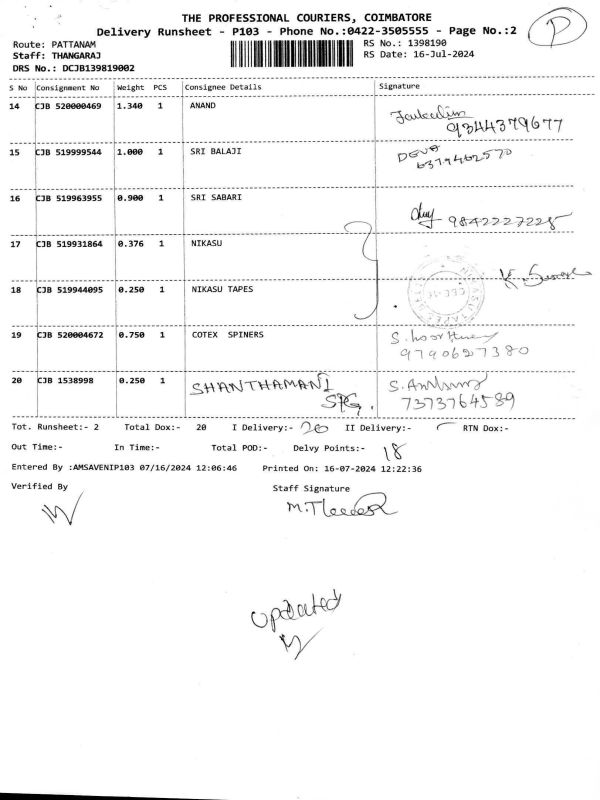 THE PROFESSIONAL COURIERS, COIMBATORE
Delivery Runsheet - P103 - Phone No.:0422-3505555 - Page No.:2
P
Route: PATTANAM
RS No.: 1398190
Staff: THANGARAJ
RS Date: 16-Jul-2024
DRS No.: DCJB139819002
S No Consignment No Weight PCS Consignee Details Signature
14 CJB 520000469 1.340 1 ANAND
9344379677
15 CJB 519999544 1.000 1 SRI BALAJI DEVA
6379462570
16 CJB 519963955 0.900 1 SRI SABARI
9842227225
17 CJB 519931864 0.376 1 NIKASU
18 CJB 519944095 0.250 1 NIKASU TAPES
19 CJB 520004672 0.750 1 COTEX SPINERS
9790627380
20 CJB 1538998 0.250 1 SHANTHAMANI
SPG.
7373764589
Tot. Runsheet:- 2 Total Dox:- 20 I Delivery:- 20 II Delivery:- RTN Dox:-
Out Time:- In Time:- Total POD:- Delvy Points:- 18
Entered By :AMSAVENIP103 07/16/2024 12:06:46 Printed On: 16-07-2024 12:22:36
Verified By Staff Signature
updated